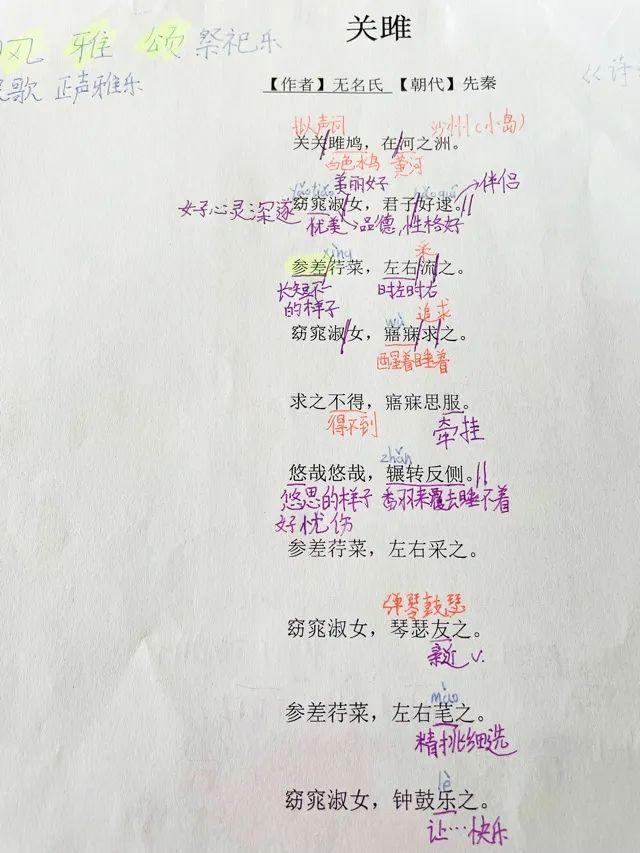 关雎
风 雅 颂 祭祀乐
民歌 正声雅乐
《诗
【作者】无名氏 【朝代】先秦
拟声词 沙州(小岛)
关关雎鸠，在河之洲。
白色水鸟 黄河
美丽女子
yǎo tiǎo hǎo qiú 伴侣
窈窕淑女，君子好逑。
女子心灵深邃
优美 品德，性格好
xìng 采
参差荇菜，左右流之。
长短不一的样子 时左时右
追求
wù
窈窕淑女，寤寐求之。
醒着睡着
求之不得，寤寐思服。
得不到 牵挂
zhǎn
悠哉悠哉，辗转反侧。
悠思的样子 翻来覆去睡不着
好忧伤
参差荇菜，左右采之。
弹琴鼓瑟
窈窕淑女，琴瑟友之。
亲近 v.
mào
参差荇菜，左右芼之。
精挑细选
lè
窈窕淑女，钟鼓乐之。
让…快乐